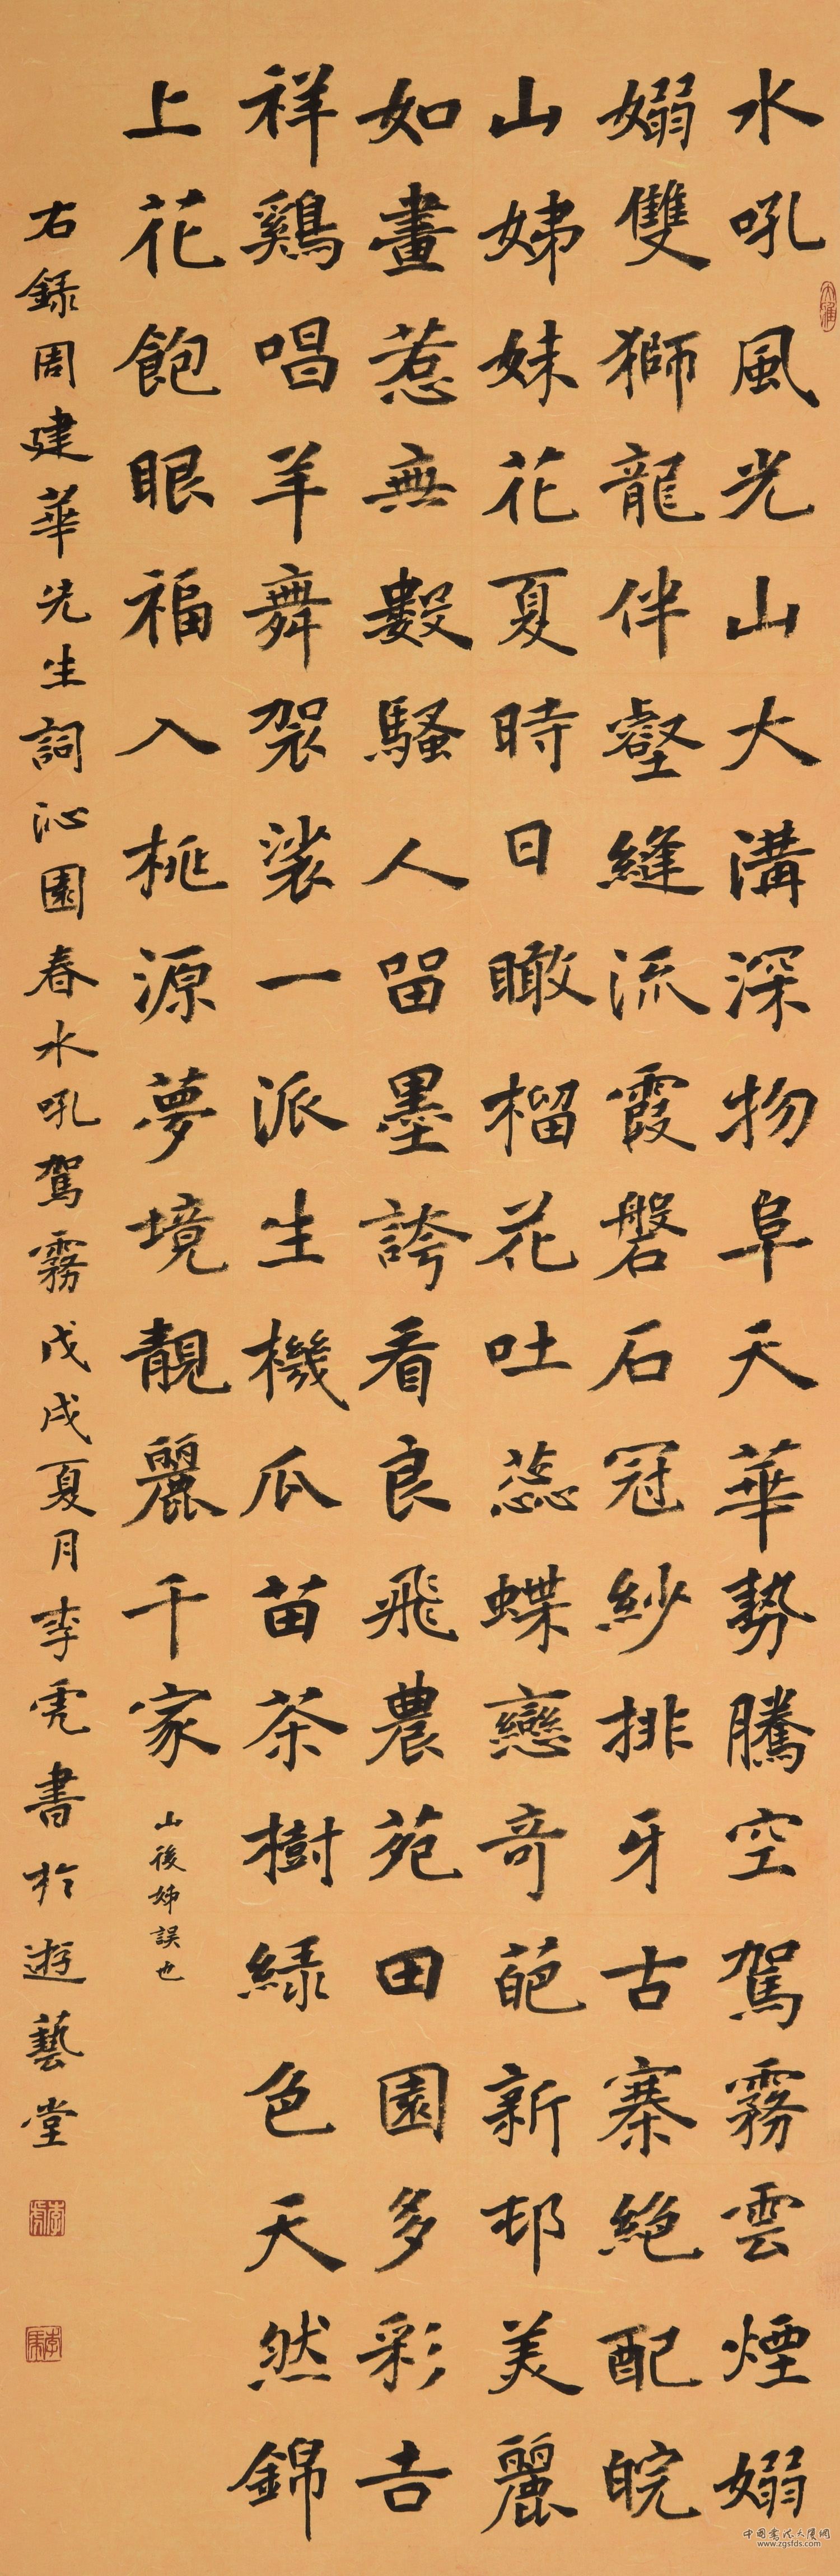 水吼風光山大溝深物阜天華勢騰空駕霧雲煙嫋
嫋雙獅龍伴壑縫流霞磐石冠紗排牙古寨絕配皖
山姊妹花夏時日瞰榴花吐蕊蝶戀奇葩新邨美麗
如畫惹無數騷人留墨誇看良飛農苑田園多彩吉
祥鷄唱羊舞袈裟一派生機瓜苗茶樹綠色天然錦
上花飽眼福入桃源夢境靚麗千家
山後姊誤也
右錄周建華先生詞沁園春水吼駕霧戊戌夏月李虎書於遊藝堂
中國書法大廈網
www.zgsfds.com